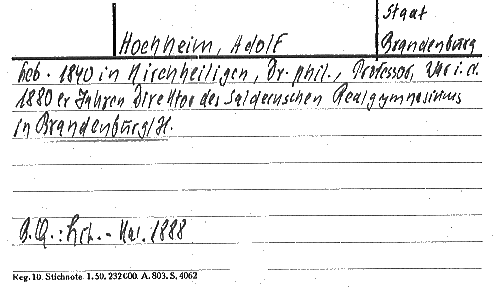 Staat
Hochheim, Adolf Brandenburg
geb. 1840 in Kirchheiligen, Dr. phil., Professor, War i. d.
1880er Jahren Direktor des Saldernschen Realgymnasiums
in Brandenburg/H.
B.Q.: Lit. - Kal. 1888
Reg. 10. Stichnote 1. 50. 232 000. A. 803. S. 4062